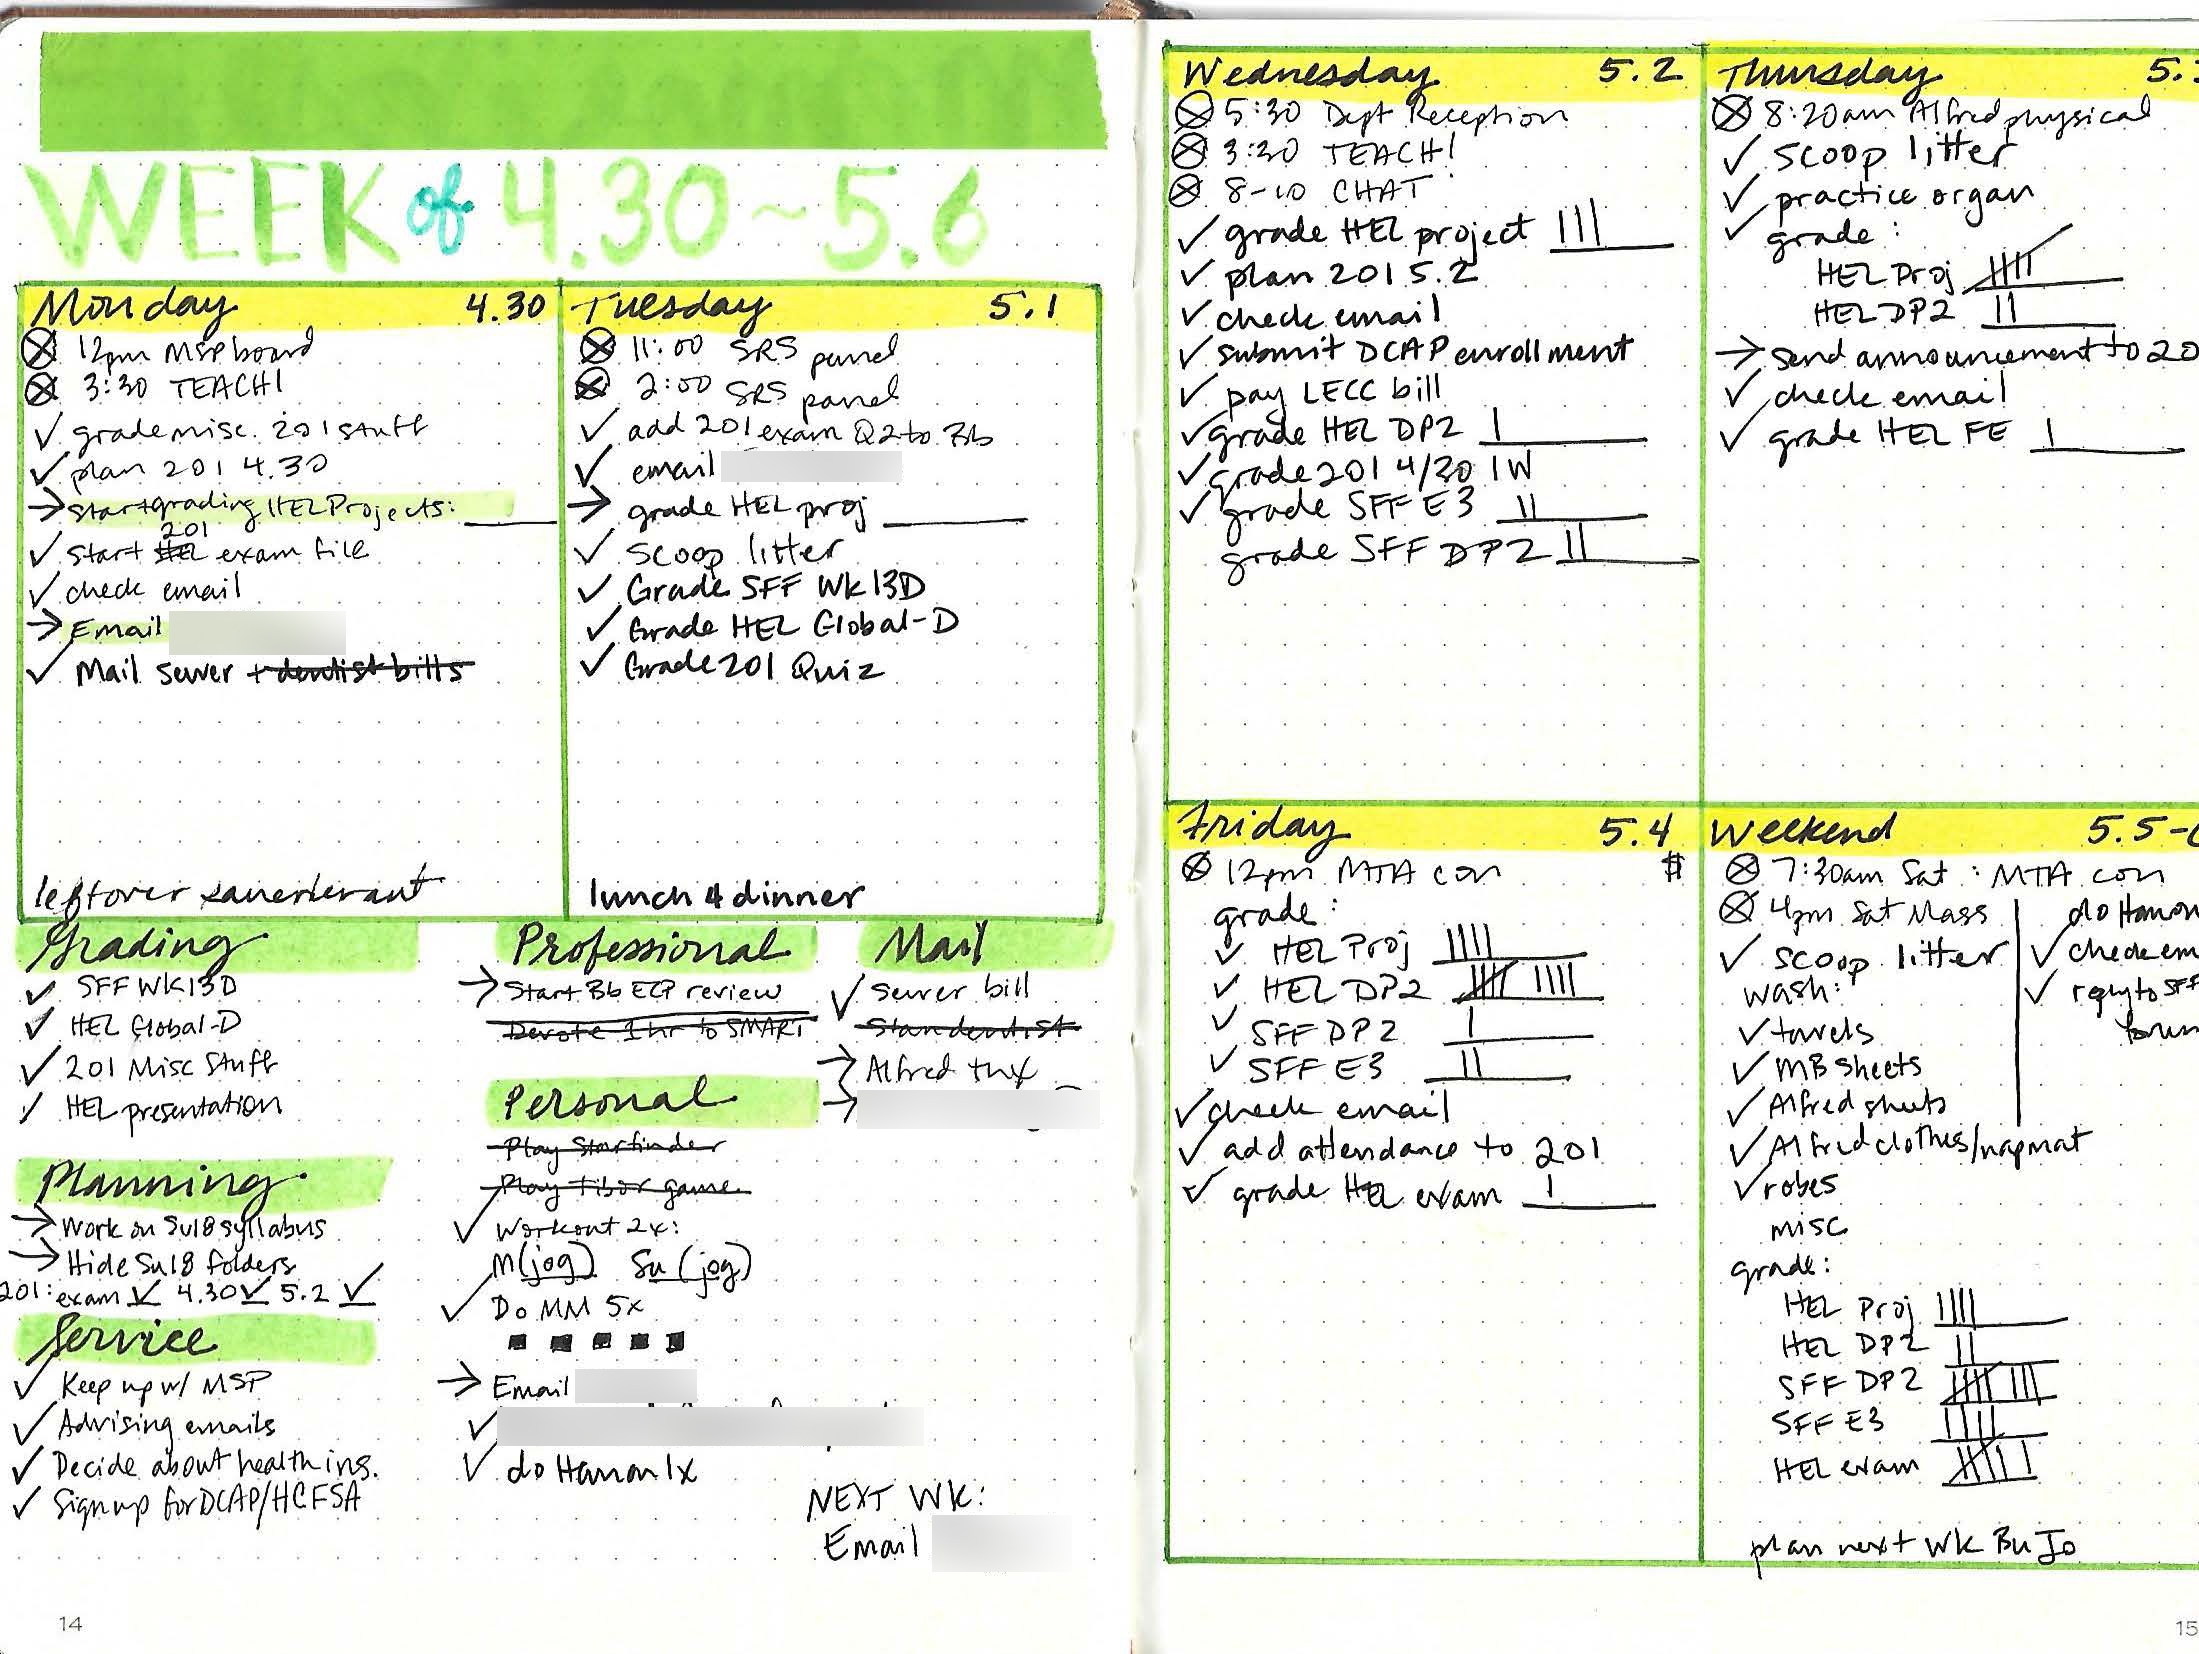 WEEK of 4.30~5.6
Monday 4.30
12pm MSP board
3:30 TEACH!
grade misc. 201 stuff
plan 201 4.30
Start grading HEL Projects:
201
start HEL exam file
check email
Email
Mail sewer + dentist bills
leftover sauerkraut
Tuesday 5.1
11:00 SRS panel
2:00 SRS panel
add 201 exam Q2 to Bb
email
grade HEL proj
scoop litter
Grade SFF WK13D
Grade HEL Global-D
Grade 201 Quiz
lunch 4 dinner
Grading
SFF WK13D
HEL Global-D
201 Misc Stuff
HEL presentation
Planning
Work on Su18 syllabus
Hide Su18 folders
201: exam 4.30 5.2
Service
Keep up w/ MSP
Advising emails
Decide about health ins.
Sign up for DCAP/HCFSA
Professional
Start Bb ECP review
Devote 1 hr to SMART
Personal
Play Starfinder
Play Tibor game
Workout 2x:
M(jog) Su (jog)
Do MM 5x
Email
do Hanon 1x
Mail
sewer bill
Stan dentist
Alfred thx
NEXT WK:
Email
14
Wednesday 5.2
5:30 Dept Reception
3:30 TEACH!
8-10 CHAT
grade HEL project
plan 201 5.2
check email
submit DCAP enrollment
pay LECC bill
grade HEL DP2
grade 201 4/30 IW
grade SFF E3
grade SFF DP2
Thursday 5.
8:20am Alfred physical
scoop litter
practice organ
grade:
HEL Proj
HEL DP2
send announcement to 20
check email
grade HEL FE
Friday 5.4
12pm MTA con $
grade:
HEL Proj
HEL DP2
SFF DP2
SFF E3
check email
add attendance to 201
grade HEL exam
Weekend 5.5-
7:30am Sat: MTA con
4pm Sat Mass
scoop litter
wash:
towels
MB sheets
Alfred sheets
Alfred clothes/napmat
robes
misc
do Hanon
check em
reply to SFF
grade:
HEL Proj
HEL DP2
SFF DP2
SFF E3
HEL exam
plan next wk BuJo
15